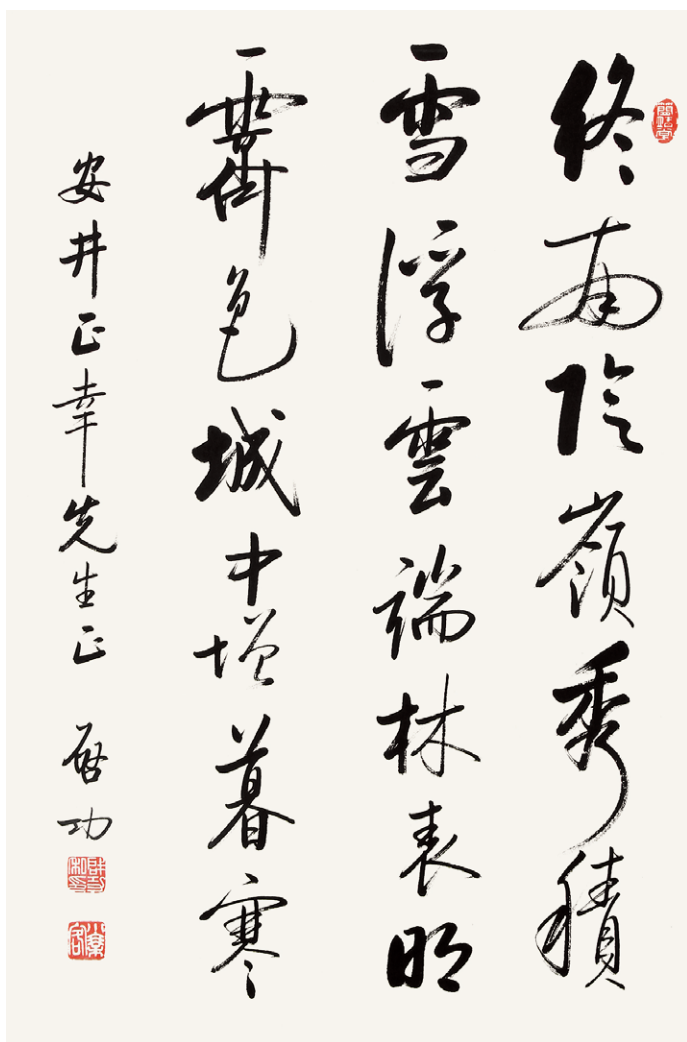 終南陰嶺秀積
雪浮雲端林表明
霽色城中增暮寒
安井正幸先生正 啓功